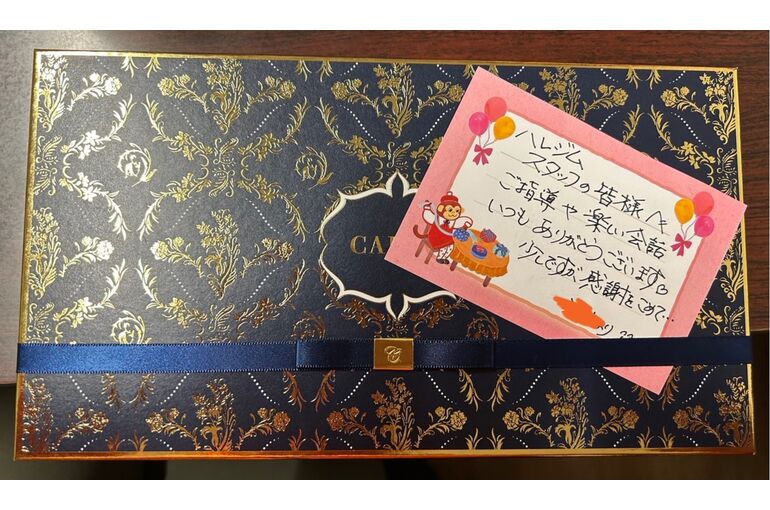 CA
ハレジム
スタッフの皆様へ
ご指導や楽しい会話
いつもありがとうございます。
少しですが感謝をこめて…
より